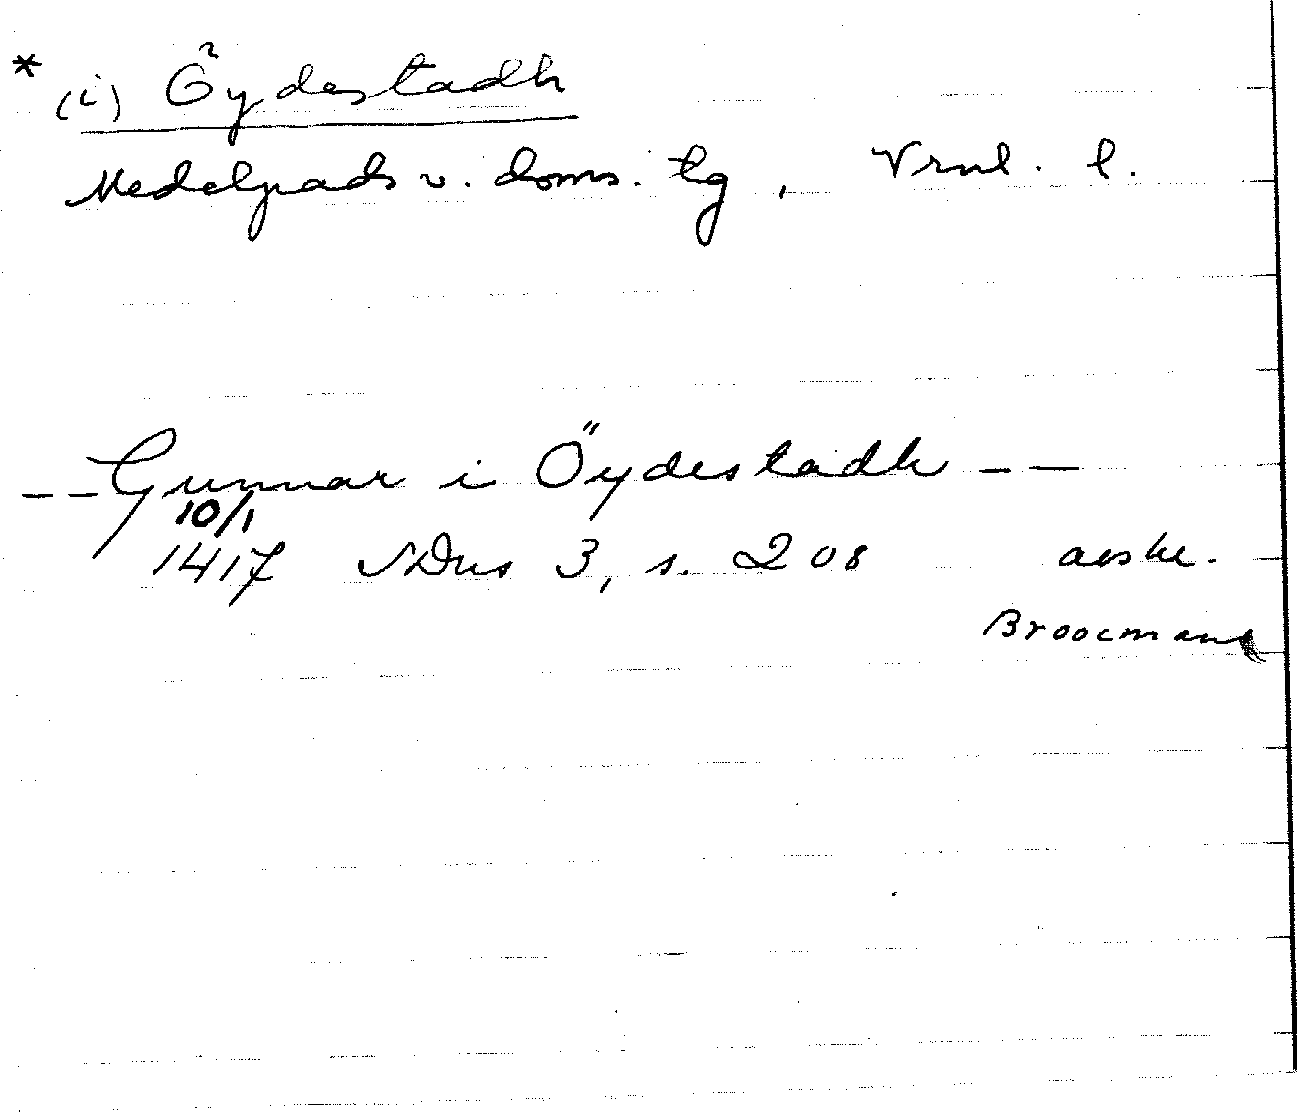 * (i) Öydestadh
Medelpads v. doms. tg, Vrnl. l.
-- Gunnar i Öydestadh --
10/1
1417 SDns 3, s. 208 avskr.
Broocmans